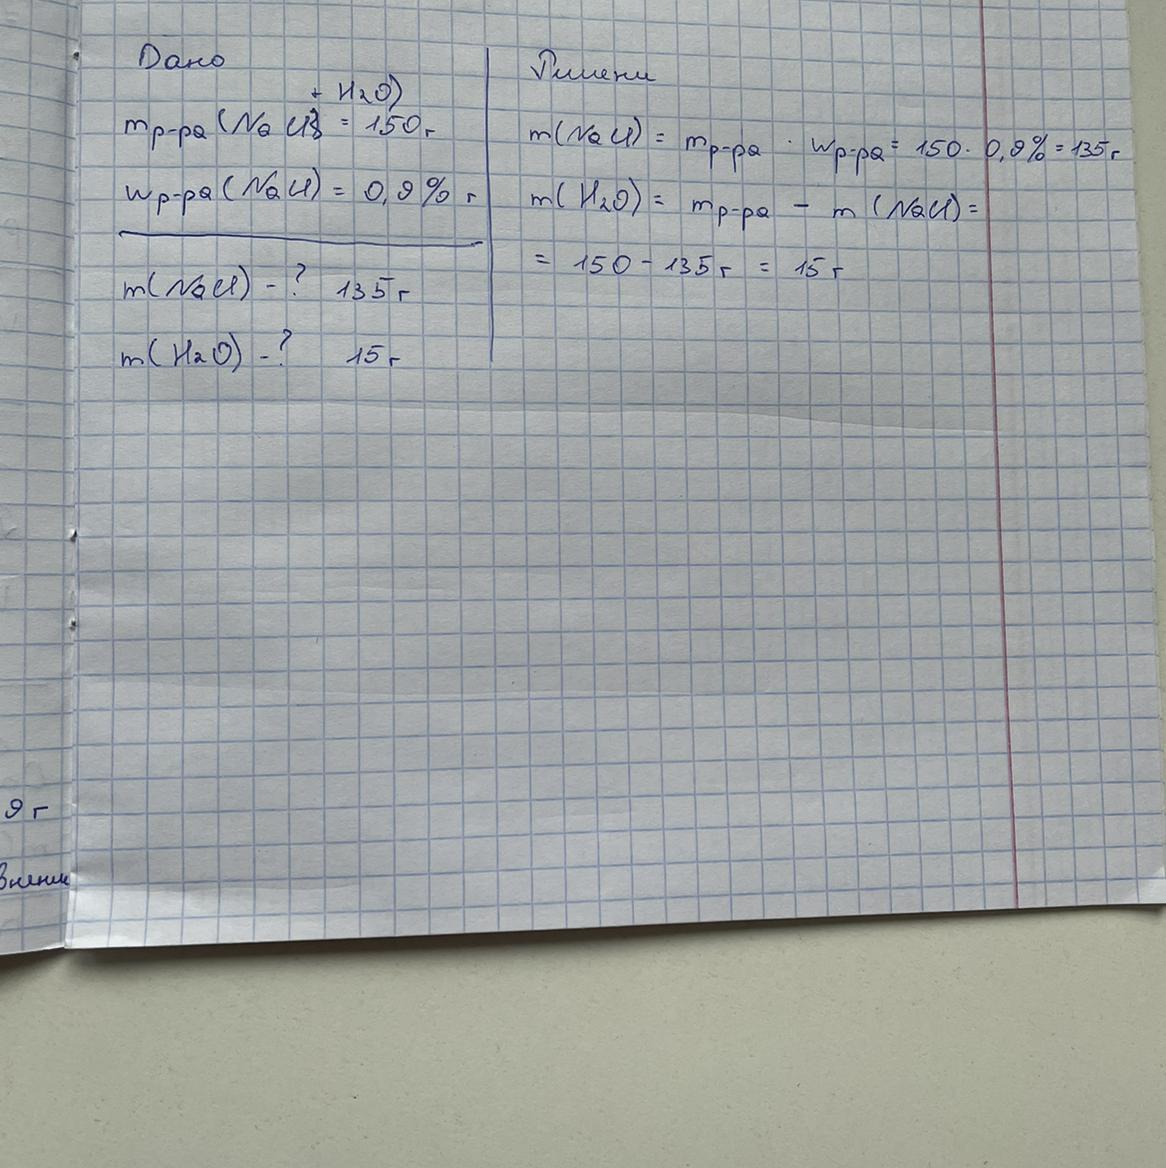 Дано
+ H₂O)
mр-ра(NaCl) = 150г
wр-ра(NaCl) = 0,9% г
m(NaCl) - ? 135г
m(H₂O) - ? 15г
Решени
m(NaCl) = mр-ра · wр-ра = 150 · 0,9% = 135г
m(H₂O) = mр-ра - m(NaCl) =
= 150 - 135г = 15г
9г